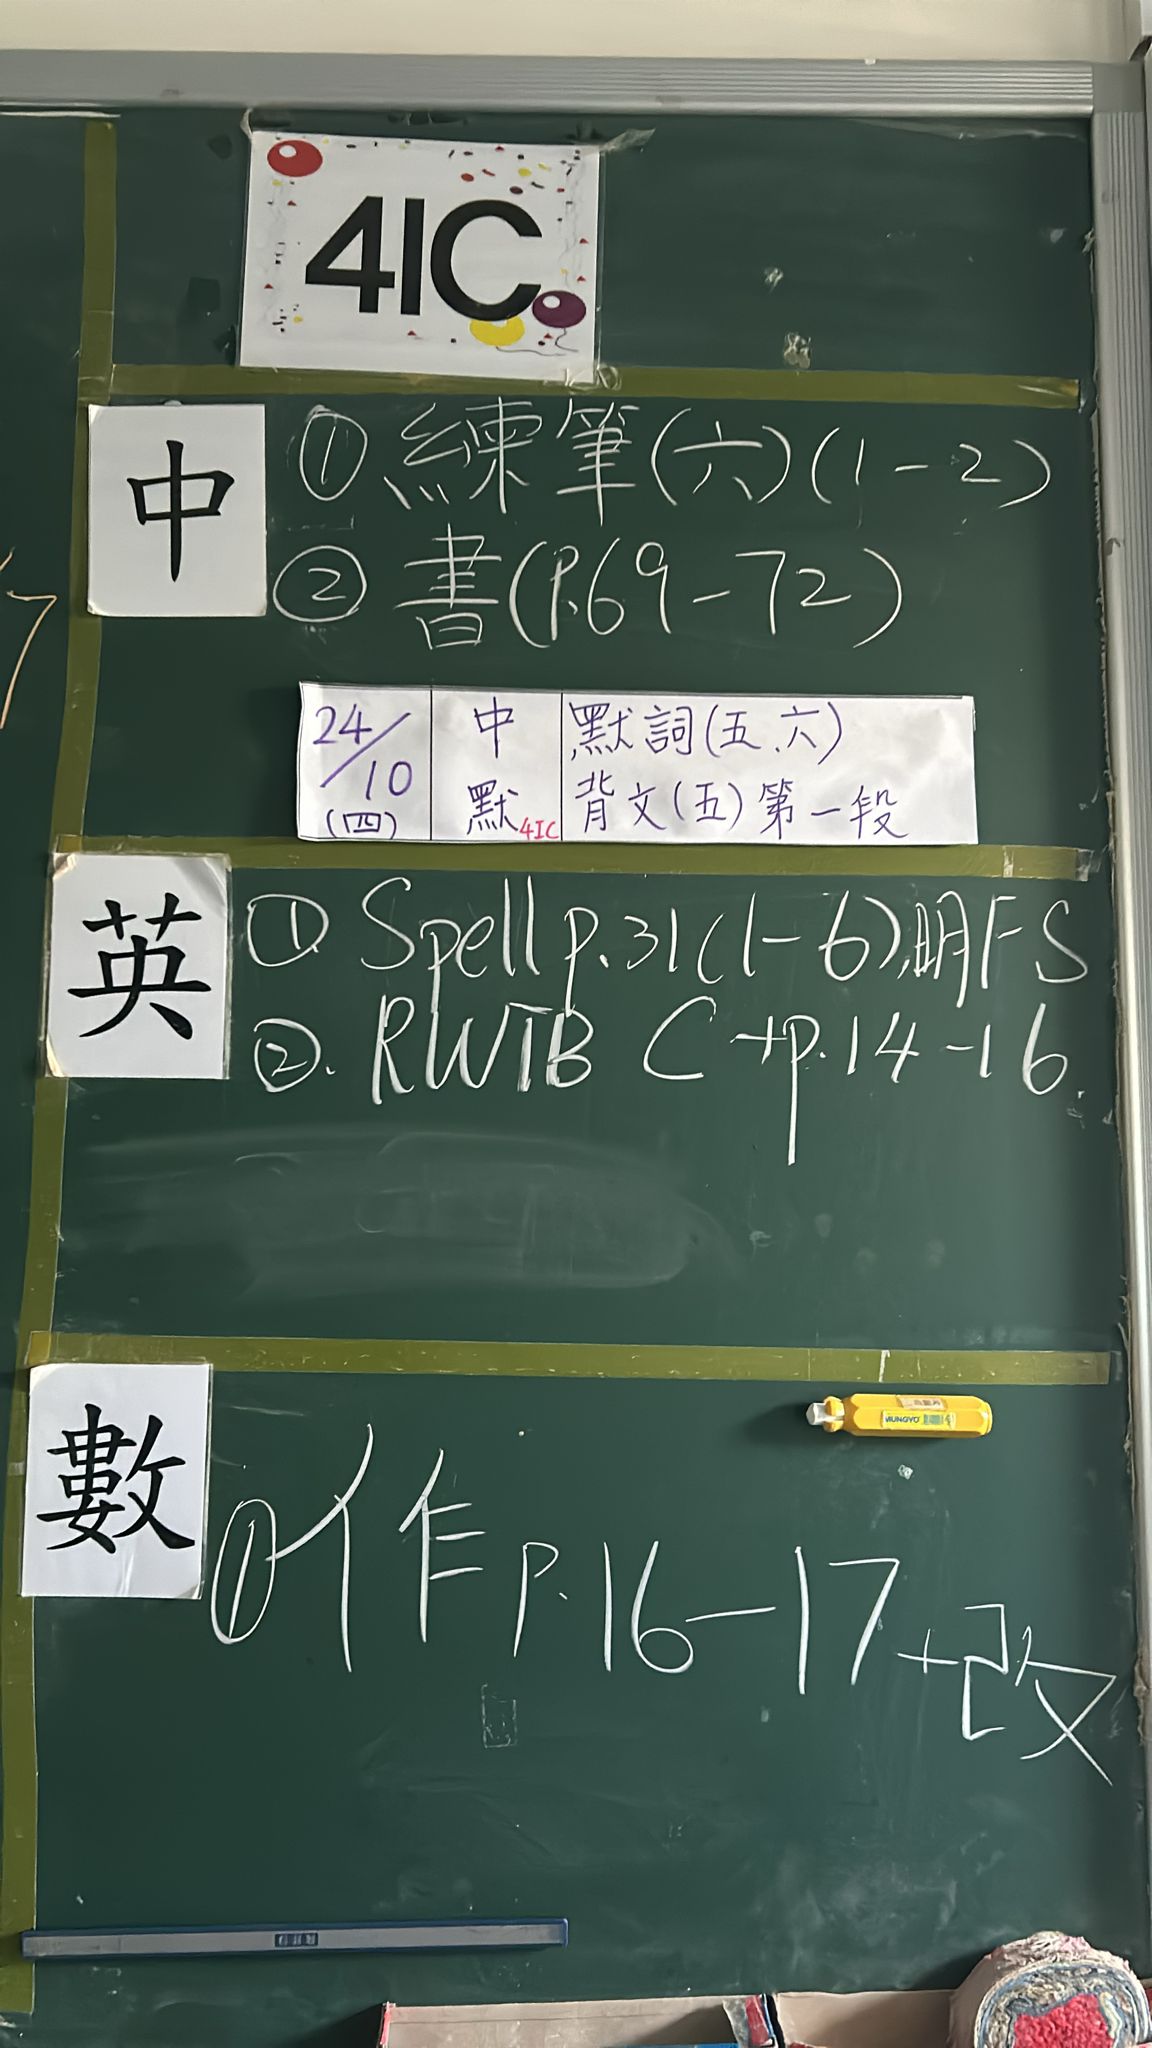 4IC
中
①練筆(六)(1-2)
②書(P.69-72)
24/10(四)
中默 4IC
默詞(五、六)
背文(五)第一段
英
①. Spell p.31(1-6),明FS
②. RWTB C+p.14-16.
數
①作p.16-17+改
MUNGYO